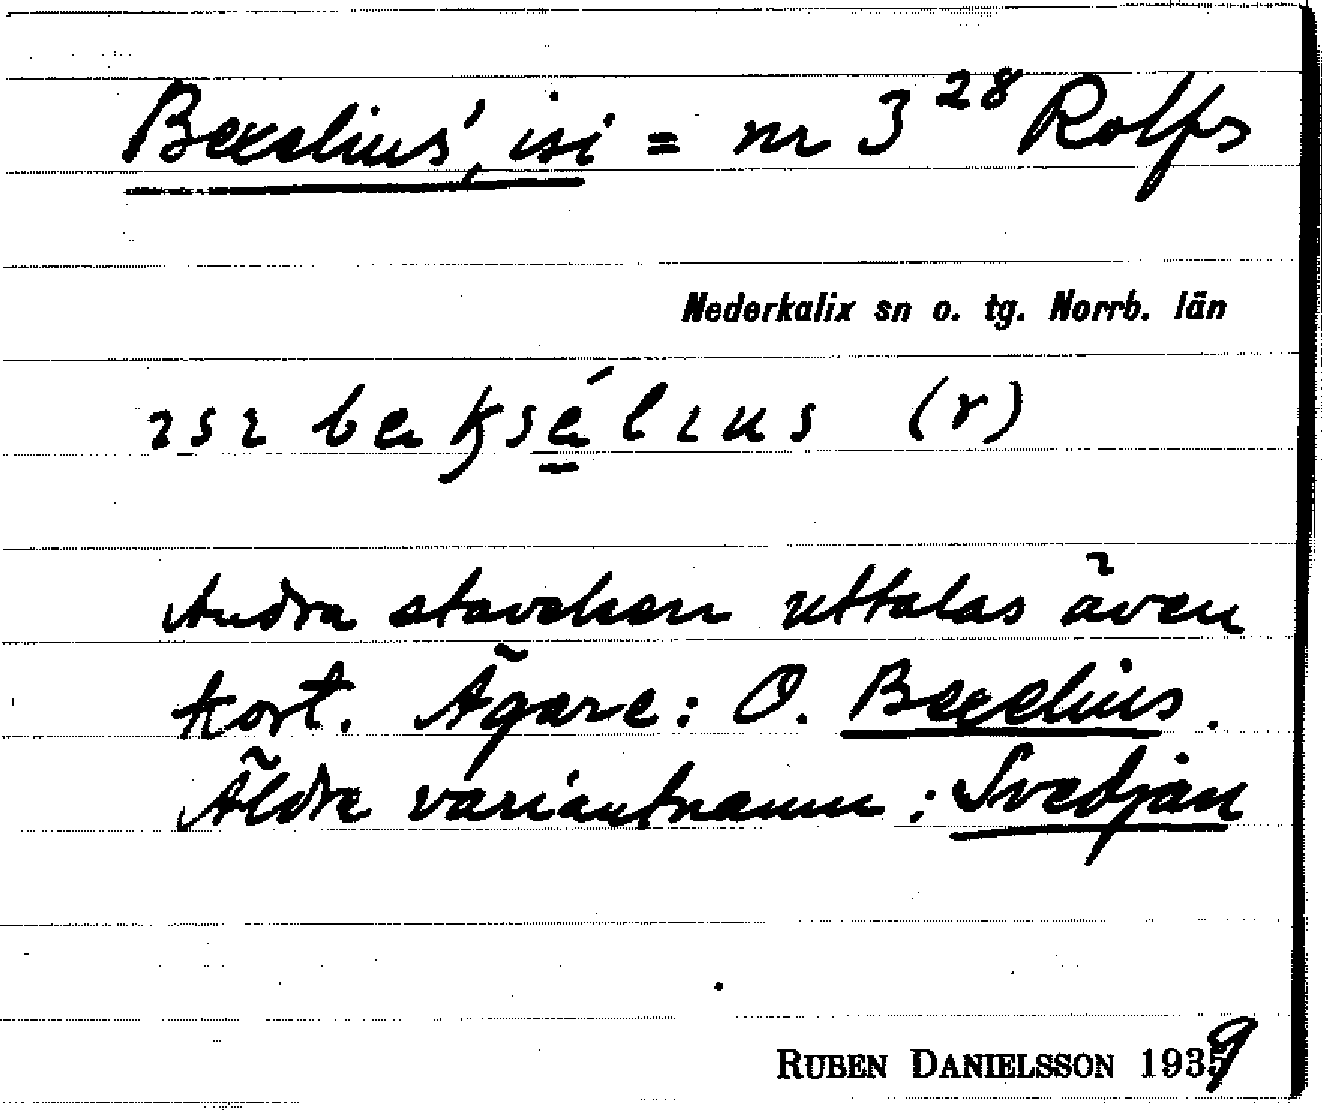 Bexelius', isi = nr 3²⁸ Rolfs
Nederkalix sn o. tg. Norrb. län
ısı beksé͟lıus (r)
Andra stavelsen uttalas även
kort. Ägare: O. Bexelius.
Äldre variantnamn: Svedjan
RUBEN DANIELSSON 1939